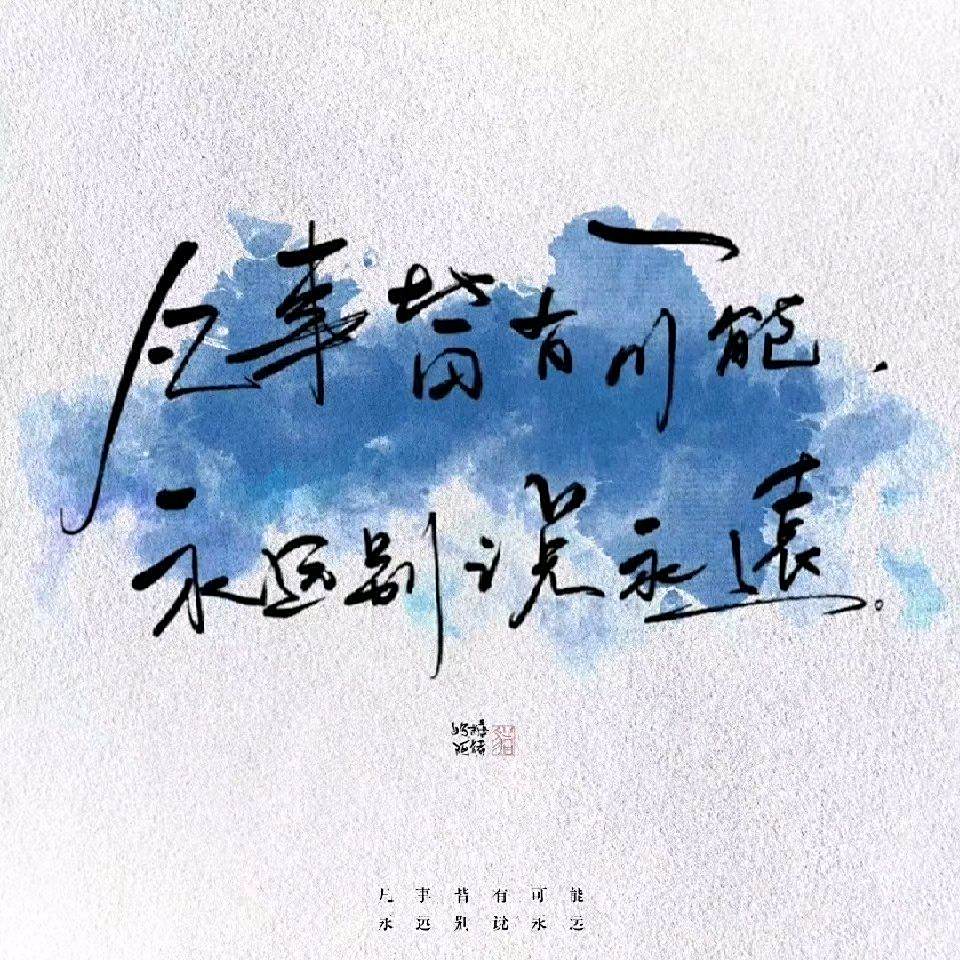 凡事皆有可能.
永远别说永遠。
凡事皆有可能
永远别说永远